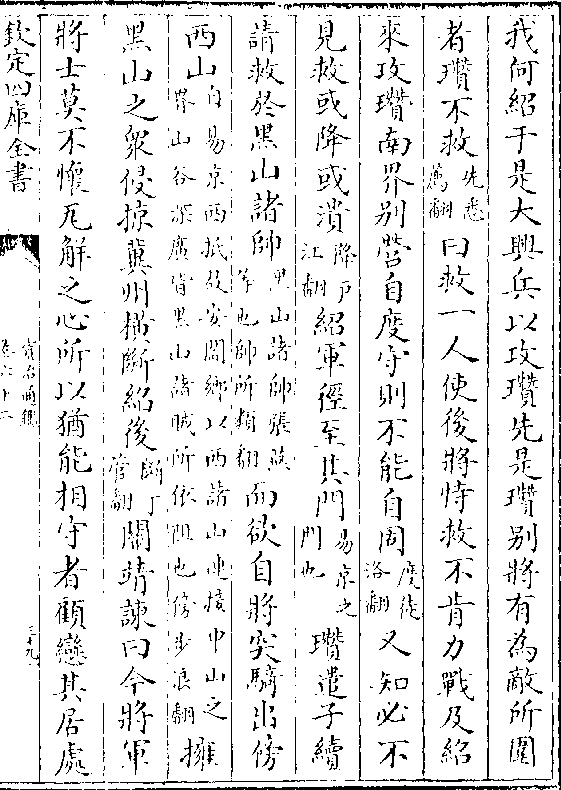 我何紹于是大興兵以攻瓚先是瓚別將有為敵所圍
者瓚不救先悉薦翻曰救一人使後將恃救不肯力戰及紹
來攻瓚南界別營自度守則不能自固度徒洛翻又知必不
見救或降或潰降户江翻紹軍徑至其門易京之門也瓚遣子續
請救於黑山諸帥黑山諸帥張燕等也帥所類翻而欲自將突騎出傍
西山自易京西抵故安閻鄉以西諸山連接中山之界山谷深廣皆黑山諸賊所依阻也傍步浪翻擁
黑山之衆侵掠冀州横斷紹後斷丁管翻關靖諫曰今將軍
將士莫不懷瓦解之心所以猶能相守者顧戀其居處
欽定四庫全書
資治通鑑
卷六十二
三十九